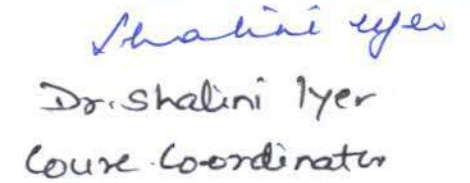 Shalini Iyer
Dr. Shalini Iyer
Course Coordinator